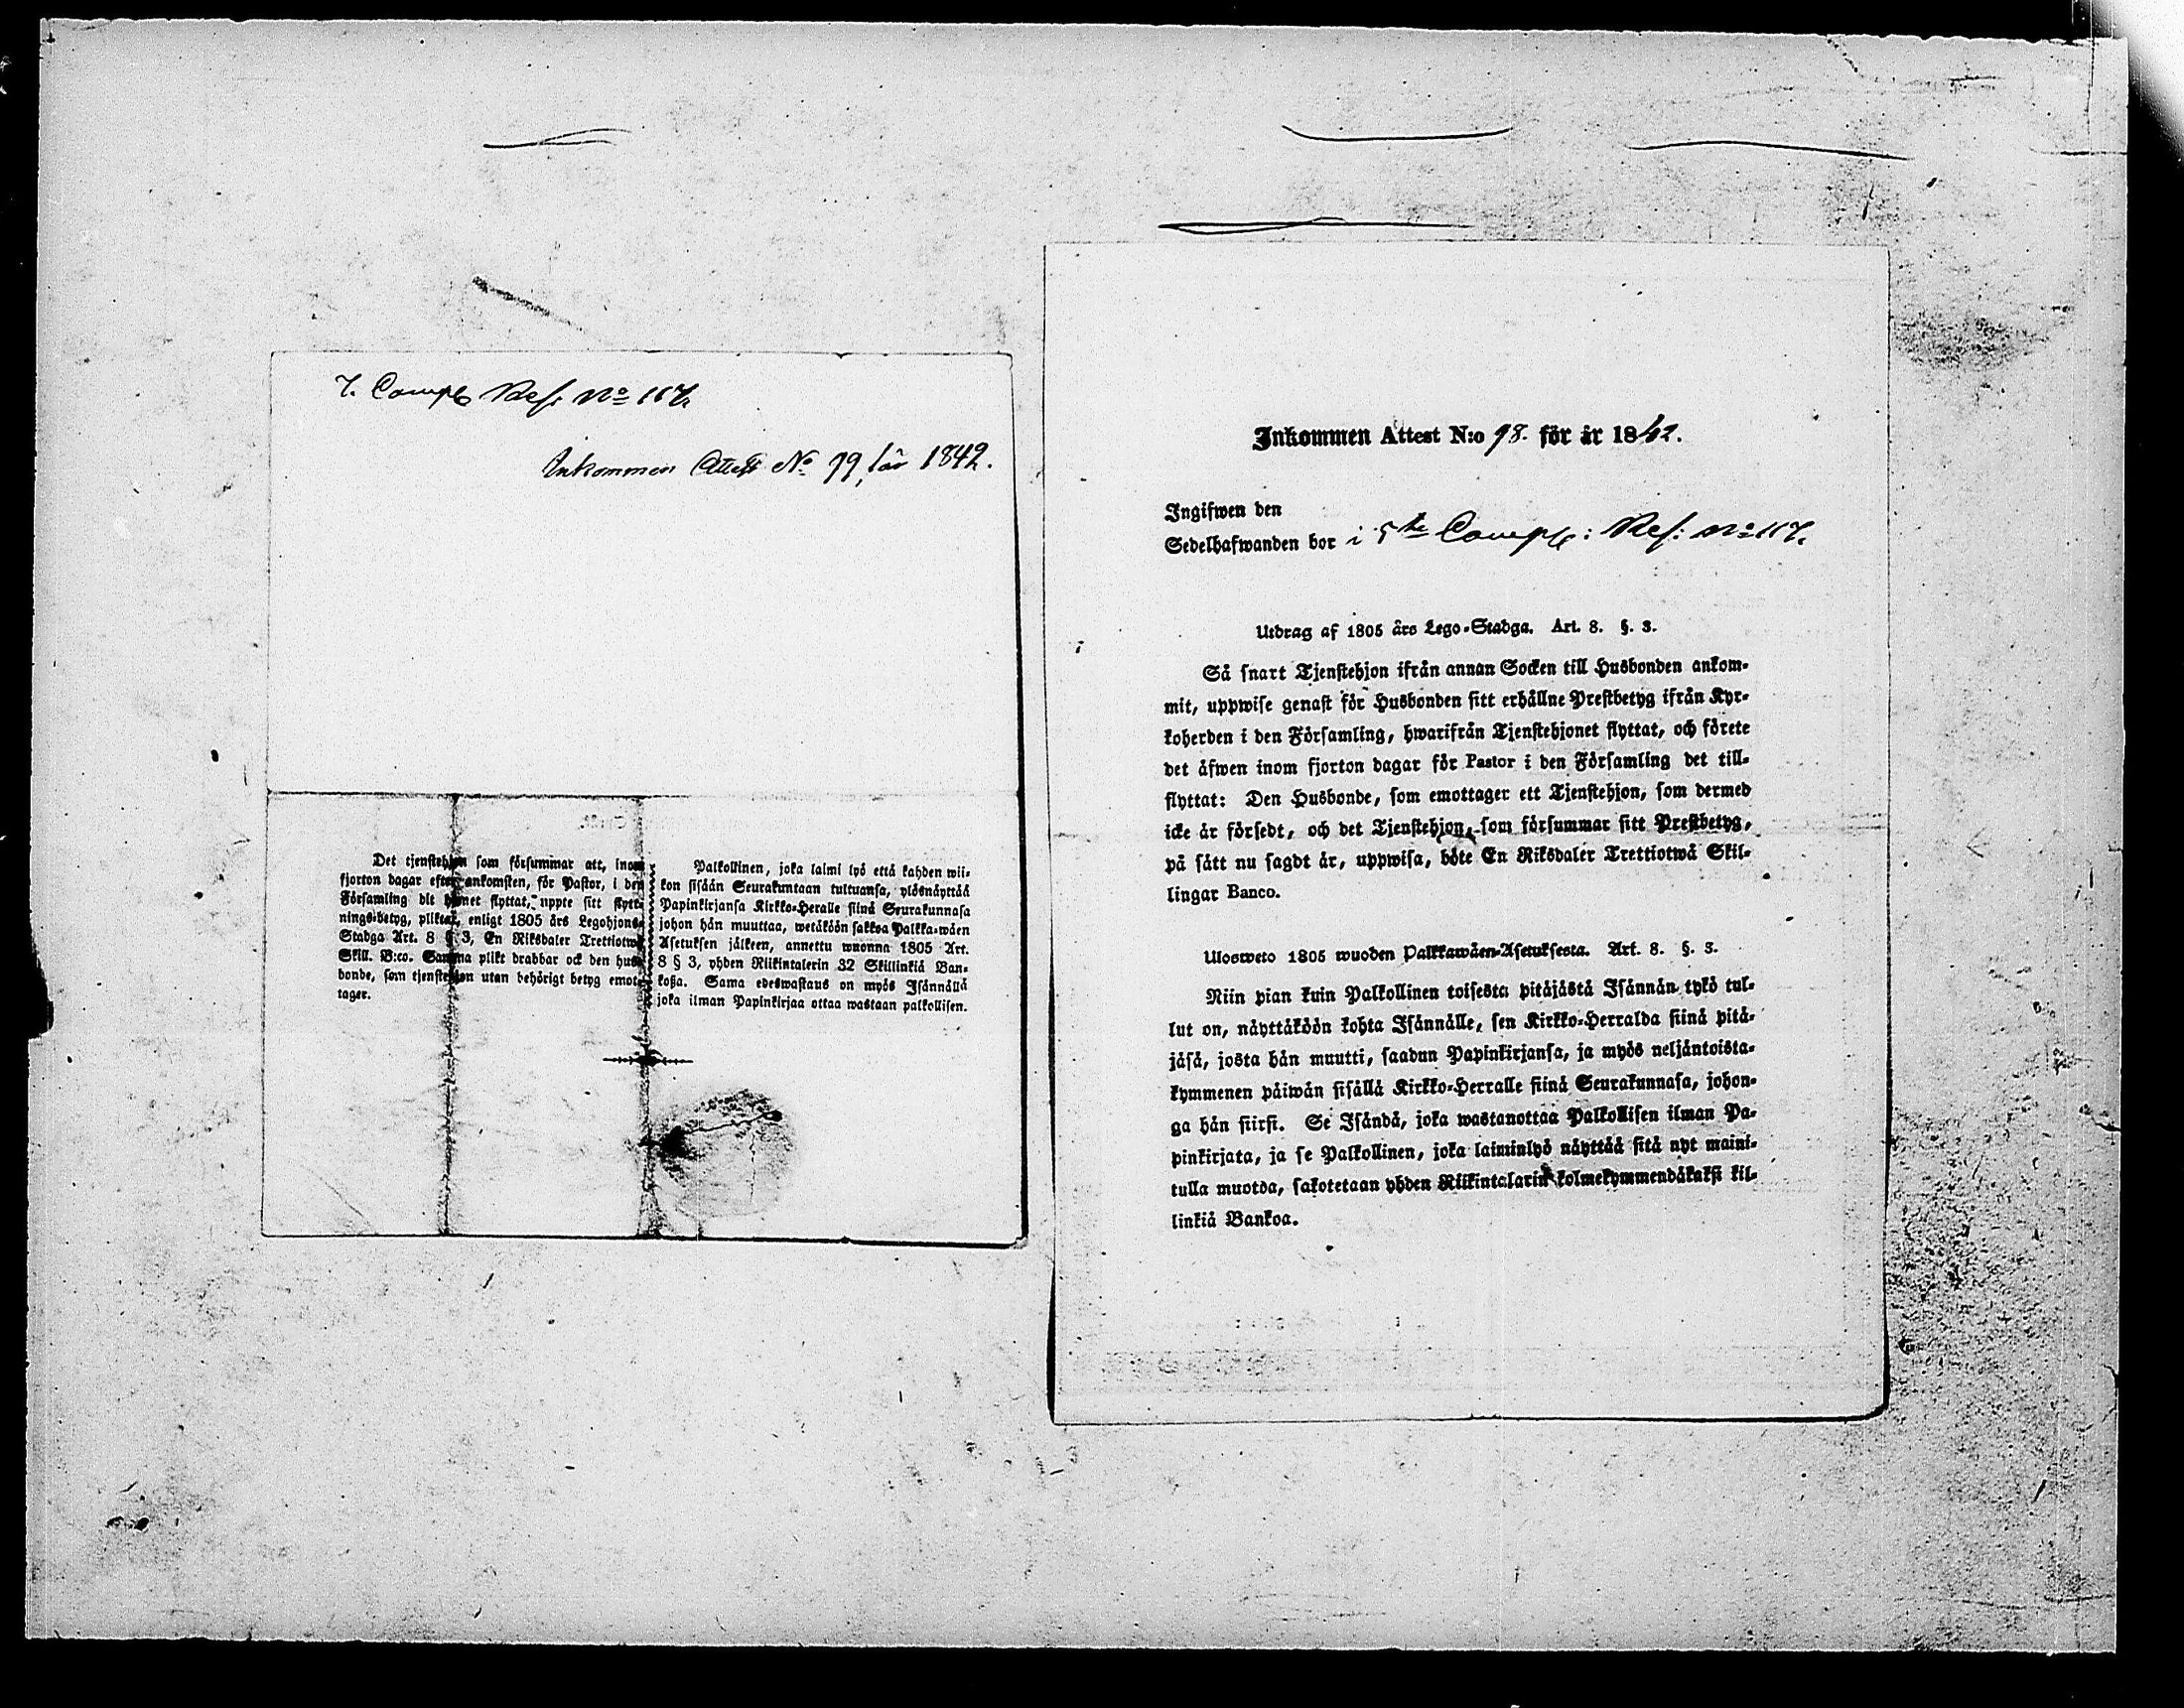 7. Comp. Ref. No 117.
Inkommen Attest No 99, för 1842.
Det tjenstehjon som försummar att, inom
fjorton dagar efter ankomsten, för Pastor, i den
Församling dit hjonet flyttat, uppte sitt flytt-
nings-betyg, pliktar, enligt 1805 års Legohjons-
Stadga Art. 8 § 3, En Riksdaler Trettiotwå
Skill. B:co. Samma plikt drabbar ock den hus-
bonde, som tjenstehjon utan behörigt betyg emot-
tager.
Palkollinen, joka laimi lyö että kahden wii-
kon sisään Seurakuntaan tultuansa, ylösnäyttää
Papinkirjansa Kirkko-Heralle siinä Seurakunnasa
johon hän muuttaa, wetäköön sakkoa Palkka-wäen
Asetuksen jälkeen, annettu wuonna 1805 Art.
8 § 3, yhden Riikintalerin 32 Skillinkiä Ban-
koßa. Sama edeswastaus on myös Isännällä
joka ilman Papinkirjaa ottaa wastaan palkollisen.
Inkommen Attest N:o 98. för år 1842.
Ingifwen den
Sedelhafwanden bor i 5te Comp: Ref: No 117.
Utdrag af 1805 års Lego-Stadga. Art. 8. §. 3.
Så snart Tjenstehjon ifrån annan Socken till Husbonden ankom-
mit, uppwise genast för Husbonden sitt erhållne Prestbetyg ifrån Kyr-
koherden i den Församling, hwarifrån Tjenstehjonet flyttat, och förete
det äfwen inom fjorton dagar för Pastor i den Församling det till-
flyttat: Den Husbonde, som emottager ett Tjenstehjon, som dermed
icke är försedt, och det Tjenstehjon, som försummar sitt Prestbetyg,
på sätt nu sagdt är, uppwisa, böte En Riksdaler Trettiotwå Skil-
lingar Banco.
Ulosweto 1805 wuoden Palkkawäen-Asetuksesta. Art. 8. §. 3.
Niin pian kuin Palkollinen toisesta pitäjästä Isännän tykö tul-
lut on, näyttäköön kohta Isännälle, sen Kirkko-Herralda siinä pitä-
jäsä, josta hän muutti, saadun Papinkirjansa, ja myös neljäntoista-
kymmenen päiwän sisällä Kirkko-Herralle siinä Seurakunnasa, johon-
ga hän siirsi. Se Isändä, joka wastanottaa Palkollisen ilman Pa-
pinkirjata, ja se Palkollinen, joka laiminlyö näyttää sitä nyt maini-
tulla muotoa, sakotetaan yhden Riikintalarin kolmekymmendäkaksi kil-
linkiä Bankoa.